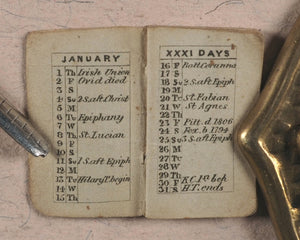 JANUARY
1 Th Irish Union
2 F Ovid died
3 S
4 Su 2S.aft Christ
5 M
6 Tu Epiphany
7 W
8 Th St. Lucian
9 F
10 S
11 Su 1S.aft Epiph
12 M
13 Tu Hilary T. begin
14 W
15 Th
XXXI DAYS
16 F Batt Corunna
17 S
18 Su 2S.aft Epiph
19 M
20 Tu St. Fabian
21 W St Agnes
22 Th
23 F Pitt. d 1806
24 S Fex. b 1794
25 Su 3S.aft Epiph
26 M
27 Tu
28 W
29 Th
30 F K.C. 1st beh
31 S H T. ends